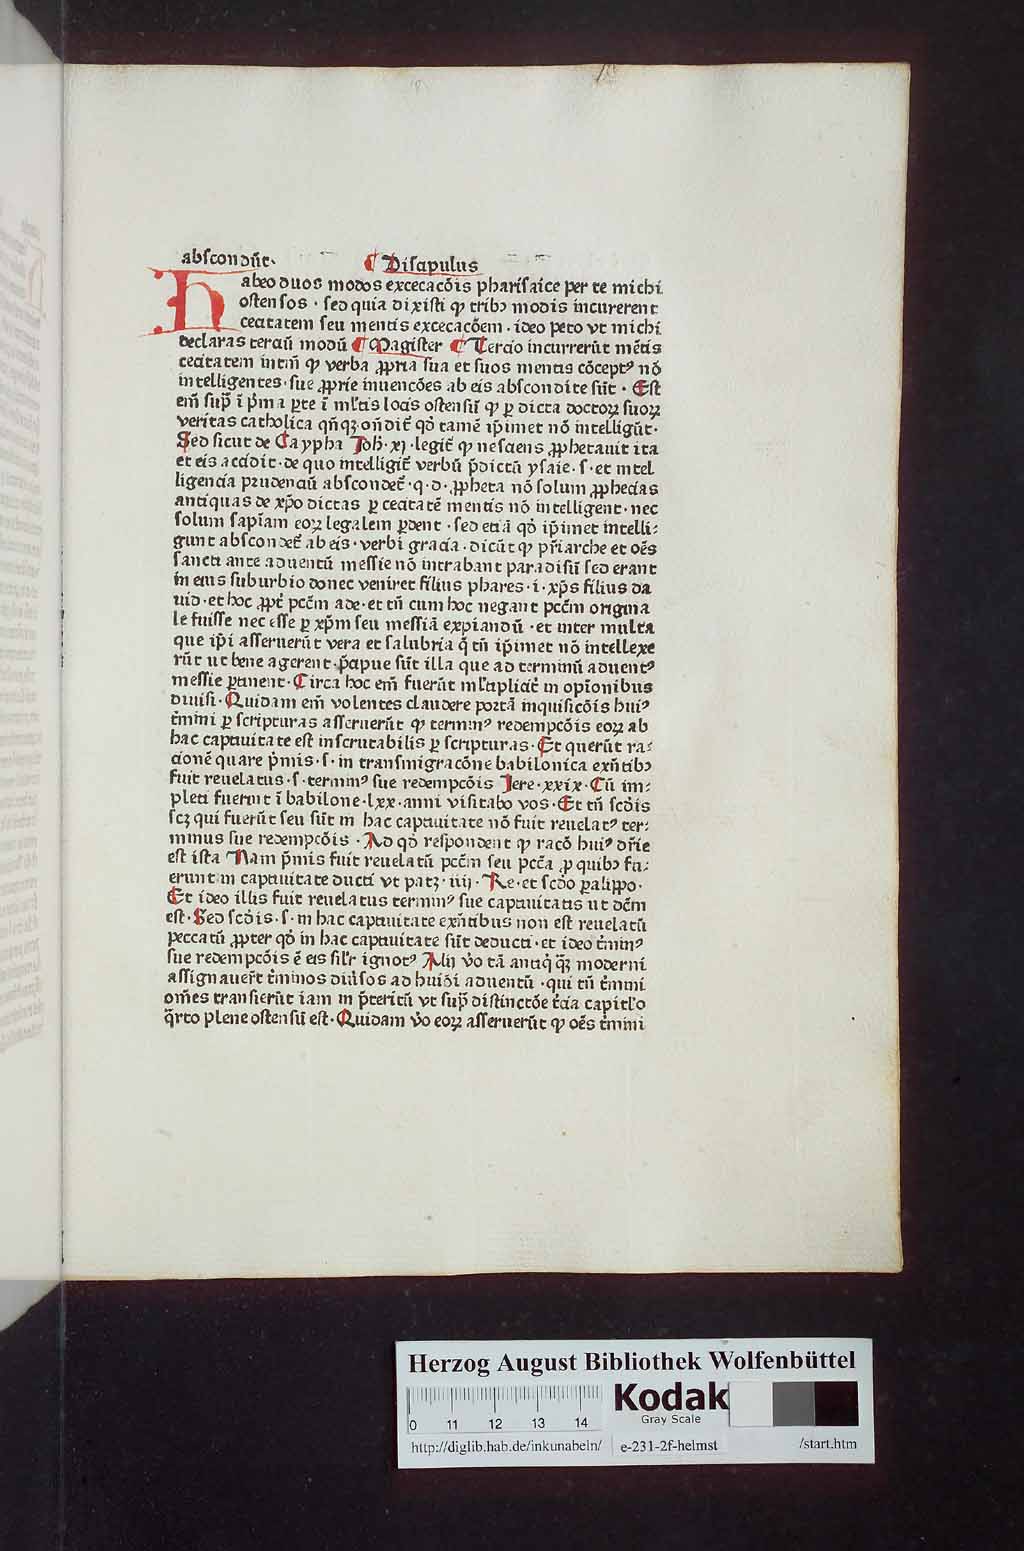 abscondūt. ¶ Discipulus
Habeo duos modos excecacōis pharisaice per te michi
ostensos · sed quia dixisti ꝙ tribꝫ modis incurerent
cecitatem seu mentis excecacōem · ideo peto vt michi
declaras terciū modū ¶ Magister ¶ Tercio incurrerūt mētis
cecitatem intm̄ ꝙ verba ꝓpria sua et suos mentis cōceptꝰ nō
intelligentes · sue ꝓprie inuencōes ab eis abscondite sūt · Est
em̄ sup̄ ī p̄ma ꝑte ī ml̄tis locis ostensū ꝙ ꝑ dicta doctoꝝ suoꝝ
veritas catholica qn̄qꝫ on̄dit̄ qd̄ tamē ip̄imet nō intelligūt ·
Sed sicut de Caypha Joh̄ · xj · legit̄ ꝙ nesciens ꝓphetauit ita
et eis accidit · de quo intelligit̄ verbū p̄dictū ysaie · s · et intel
ligencia prudenciū abscondet̄ · q · d · ꝓpheta nō solum ꝓphecias
antiquas de xp̄o dictas ꝑ cecitatē mentis nō intelligent · nec
solum sapīam eoꝝ legalem ꝑdent · sed etiā qd̄ ip̄imet intelli⸗
gunt abscondet̄ ab eis · verbi gracia · dicūt ꝙ pr̄iarche et oēs
sancti ante aduentū messie nō intrabant paradisū sed erant
in eius suburbio donec veniret filius phares · i · xp̄s filius da
uid · et hoc ꝓpt̄ pcc̄m ade · et tn̄ cum hoc negant pcc̄m origina
le fuisse nec esse ꝑ xp̄m seu messiā expiandū · et inter multa
que ip̄i asseruerūt vera et salubria q̄ tn̄ ip̄imet nō intellexe
rūt ut bene agerent · p̄cipue sūt illa que ad terminū aduentꝰ
messie ꝑtinent · Circa hoc em̄ fuerūt ml̄tiplicit̄ in opīonibus
diuisi · Quidam em̄ volentes claudere portā inquisicōis huiꝰ
t̄mini ꝑ scripturas asseruerūt ꝙ terminꝰ redempcōis eoꝝ ab
hac captiuitate est inscrutabilis ꝑ scripturas · Et querūt ra⸗
cionē quare p̄mis · s · in transmigracōne babilonica exn̄tibꝫ
fuit reuelatus · s · terminꝰ sue redempcōis Jere · xxix · Cū im⸗
pleti fuerint ī babilone · lxx · anni visitabo vos · Et tn̄ scd̄is
scꝫ qui fuerūt seu sūt in hac captiuitate nō fuit reuelatꝰ ter⸗
minus sue redempcōis · Ad qd̄ respondent ꝙ racō huiꝰ dr̄ie
est ista Nam p̄mis fuit reuelatū pcc̄m seu pcc̄a ꝓ quibꝫ fu⸗
erunt in captiuitate ducti vt patꝫ · iiij · Re · et scd̄o ꝑalippo ·
Et ideo illis fuit reuelatus terminꝰ sue captiuitatis ut dc̄m
est · Sed scd̄is · s · in hac captiuitate exn̄tibus non est reuelatū
peccatū ꝓpter qd̄ in hac captiuitate sūt deducti · et ideo t̄minꝰ
sue redempcōis ē eis sil̄r ignotꝰ Alij v̄o tā antiq̄ q̄ꝫ moderni
assignauer̄t t̄minos diūsos ad huiꝰi aduentū · qui tn̄ t̄mini
om̄es transierūt iam in p̄teritū vt sup̄ distinctōe t̄cia capitl̄o
q̄rto plene ostensū est · Quidam v̄o eoꝝ asseruerūt ꝙ oēs t̄mini
Herzog August Bibliothek Wolfenbüttel
0 11 12 13 14
Kodak
Gray Scale
http://diglib.hab.de/inkunabeln/ e-231-2f-helmst /start.htm